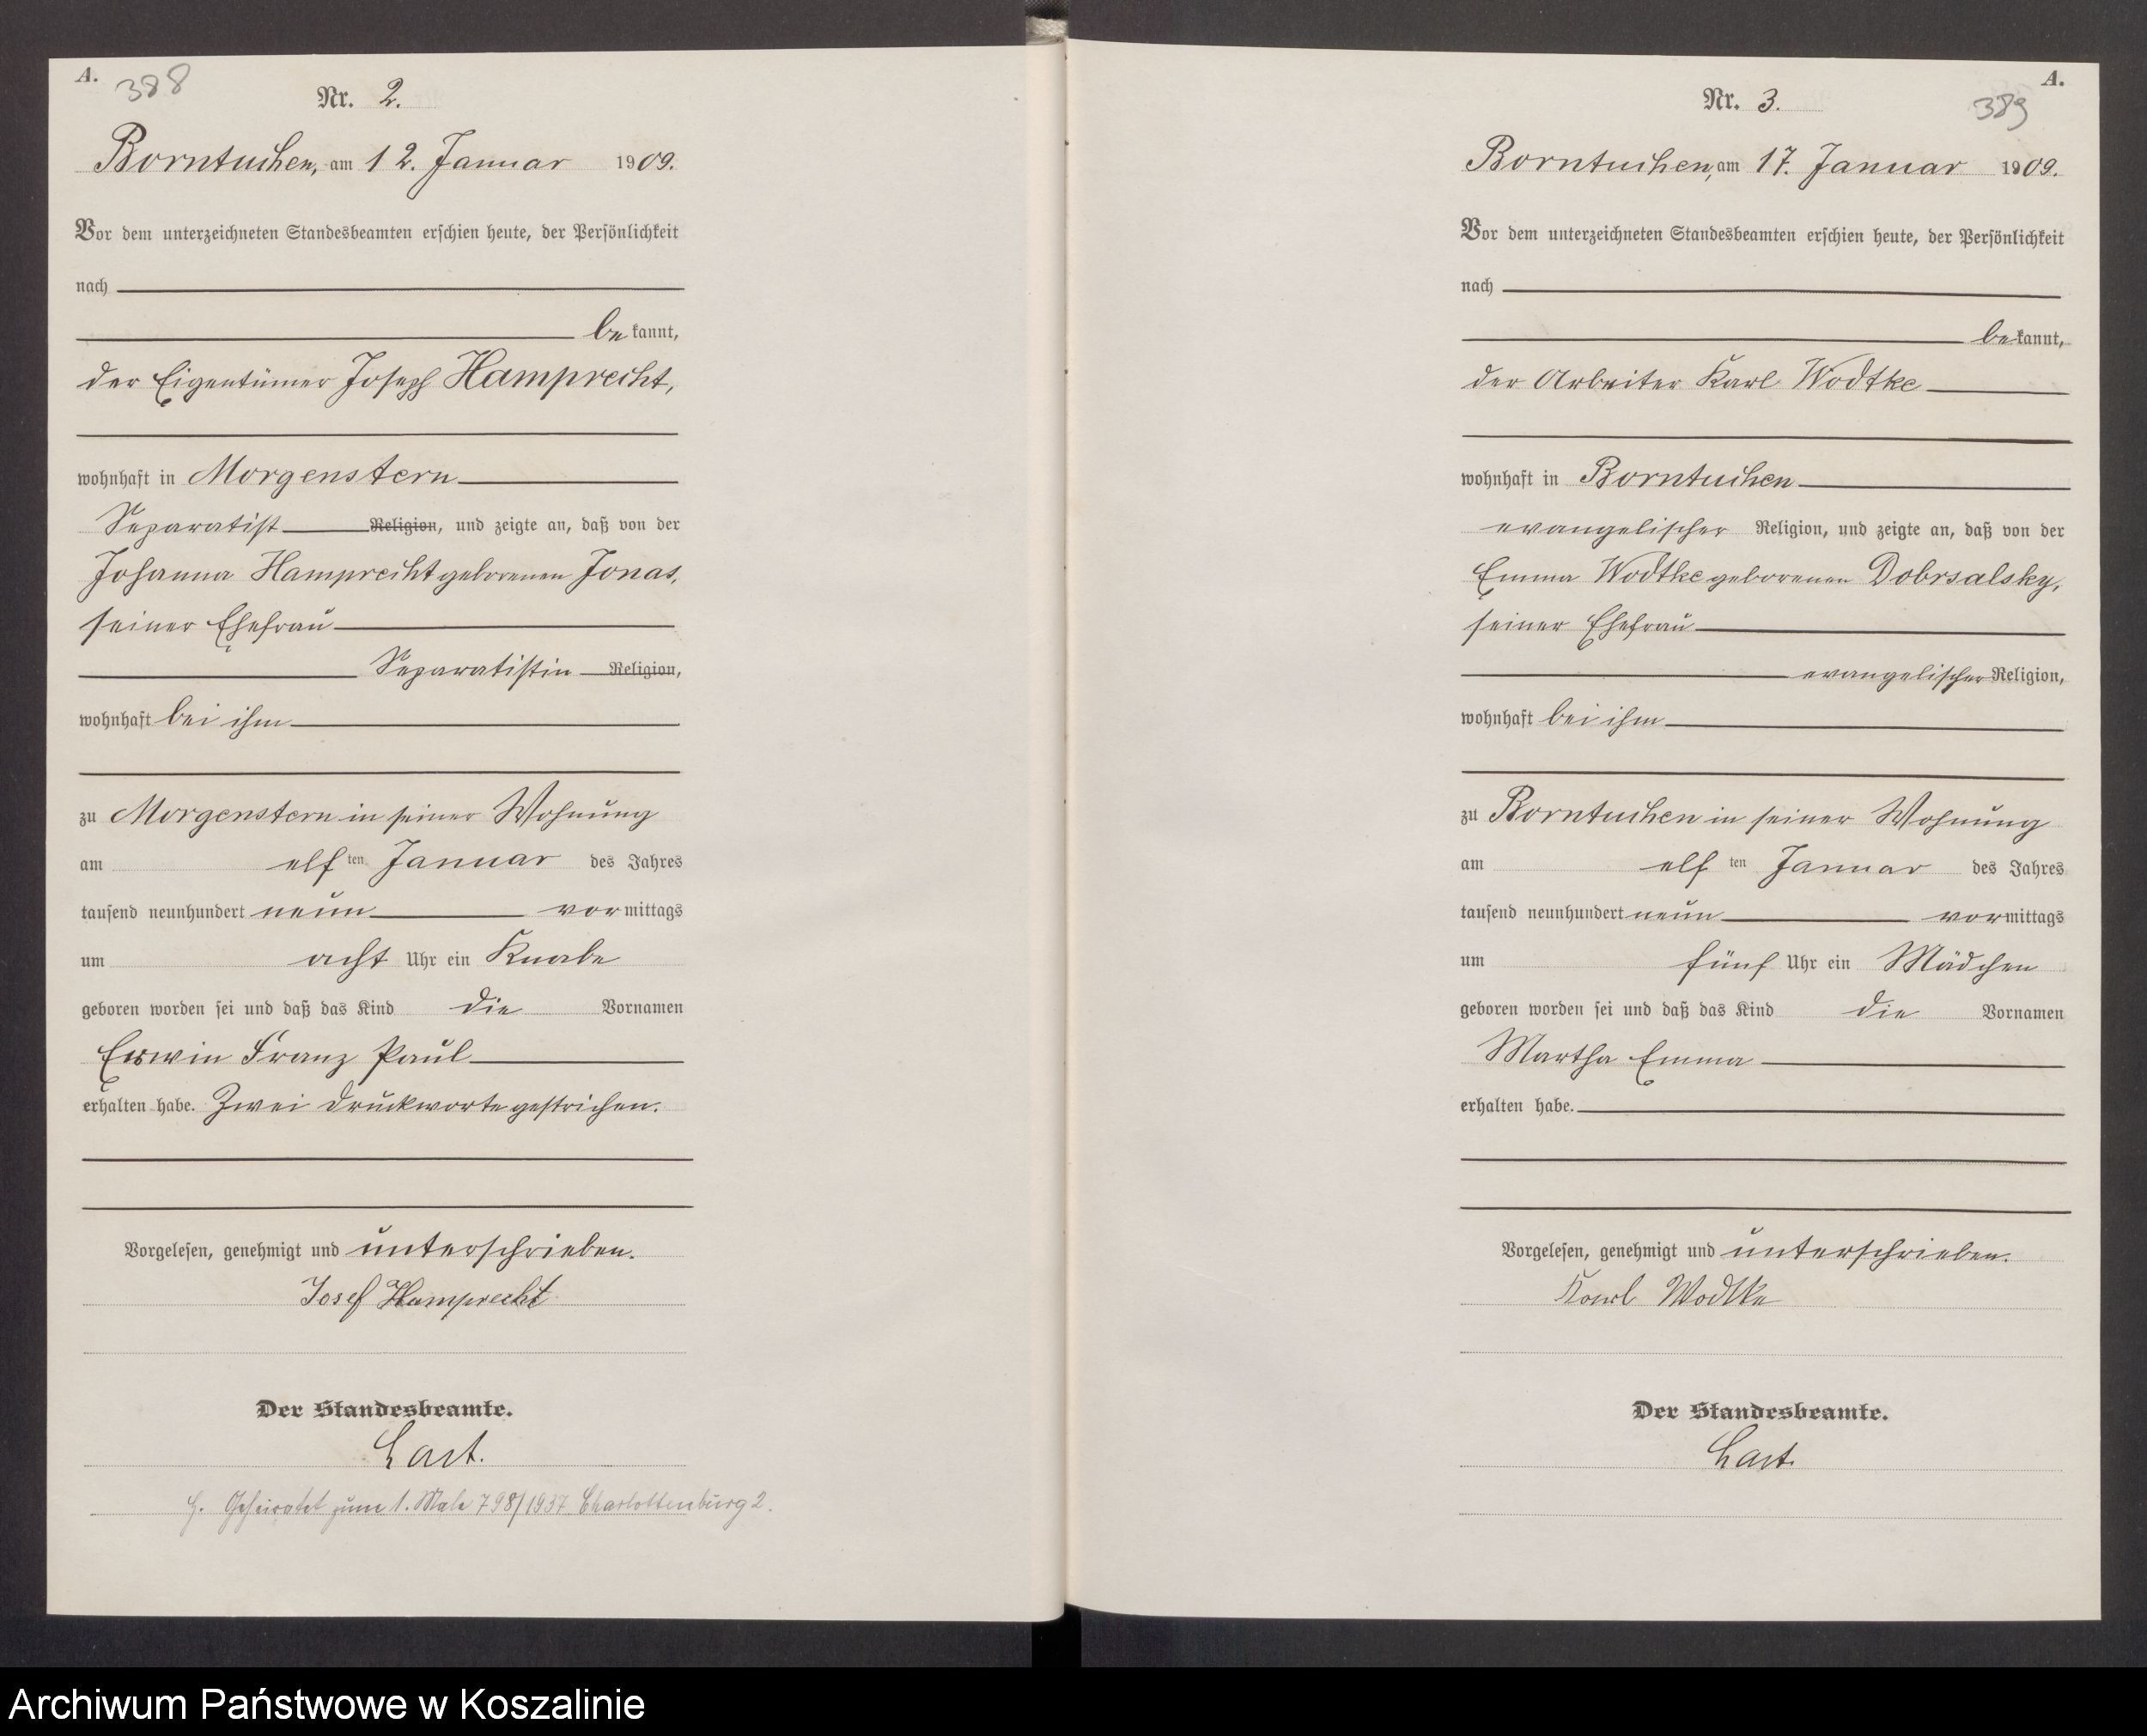 A.
388
Nr. 2.
Borntuchen, am 12. Januar 1909.
Vor dem unterzeichneten Standesbeamten erschien heute, der Persönlichkeit
nach
be kannt,
der Eigentümer Joseph Hamprecht,
wohnhaft in Morgenstern
Separatist Religion, und zeigte an, daß von der
Johanna Hamprecht geborenen Jonas,
seiner Ehefrau
Separatistin Religion,
wohnhaft bei ihm
zu Morgenstern in seiner Wohnung
am elf ten Januar des Jahres
tausend neunhundert neun vor mittags
um acht Uhr ein Knabe
geboren worden sei und daß das Kind die Vornamen
Erwin Franz Paul
erhalten habe. Zwei Druckworte gestrichen.
Vorgelesen, genehmigt und unterschrieben.
Josef Hamprecht
Der Standesbeamte.
Last.
Geheiratet zum 1. Male 798/1937 Charlottenburg 2.
A.
389
Nr. 3.
Borntuchen, am 17. Januar 1909.
Vor dem unterzeichneten Standesbeamten erschien heute, der Persönlichkeit
nach
be kannt,
der Arbeiter Karl Wodtke
wohnhaft in Borntuchen
evangelischer Religion, und zeigte an, daß von der
Emma Wodtke geborenen Dobrsalsky,
seiner Ehefrau
evangelischer Religion,
wohnhaft bei ihm
zu Borntuchen in seiner Wohnung
am elf ten Januar des Jahres
tausend neunhundert neun vor mittags
um fünf Uhr ein Mädchen
geboren worden sei und daß das Kind die Vornamen
Martha Emma
erhalten habe.
Vorgelesen, genehmigt und unterschrieben.
Karl Wodtke
Der Standesbeamte.
Last.
Archiwum Państwowe w Koszalinie